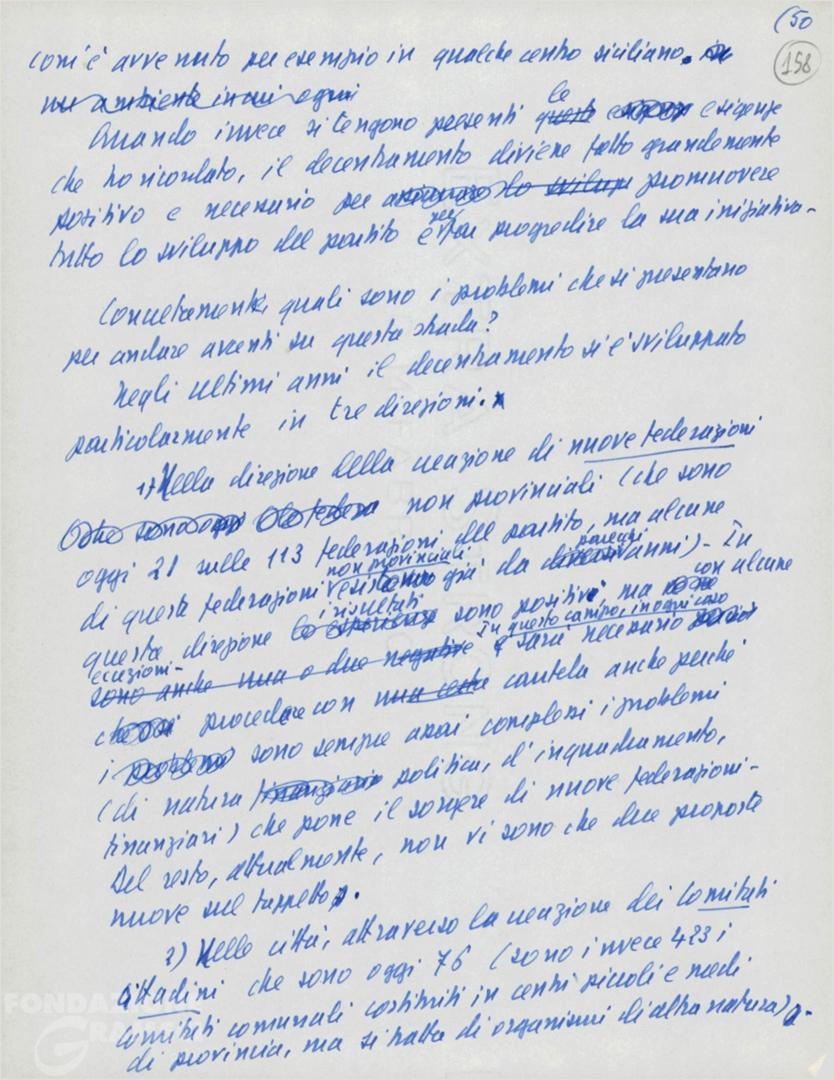 (50
158
com'è avvenuto per esempio in qualche centro siciliano. in
un ambiente in cui ogni
Quando invece si tengono presenti queste le esigenze
che ho ricordato, il decentramento diviene fatto grandemente
positivo e necessario per lo svilupp promuovere
tutto lo sviluppo del partito e per far progredire la sua iniziativa-
Concretamente, quali sono i problemi che si presentano
per andare avanti su questa strada?
Negli ultimi anni il decentramento si è sviluppato
particolarmente in tre direzioni.
1) Nella direzione della creazione di nuove federazioni
non provinciali (che sono
oggi 21 sulle 113 federazioni del partito, ma alcune
di queste federazioni non provinciali esistono già da parecchi anni)- In
questa direzione le esperienze i risultati sono positivi, ma con alcune
eccezioni-
sono anche una o due negative In questo campo, in ogni caso sarà necessario
procedere con una certa cautela anche perché
i problemi sono sempre assai complessi i problemi
(di natura finanziaria politica, d'inquadramento,
finanziari) che pone il sorgere di nuove federazioni-
Del resto, attualmente, non vi sono che due proposte
nuove sul tappeto.
2) Nelle città, attraverso la creazione dei Comitati
cittadini che sono oggi 76 (sono invece 423 i
comitati comunali costituiti in centri piccoli e medi
di provincia, ma si tratta di organismi di altra natura).-
FONDAZIONE
GRAMSCI